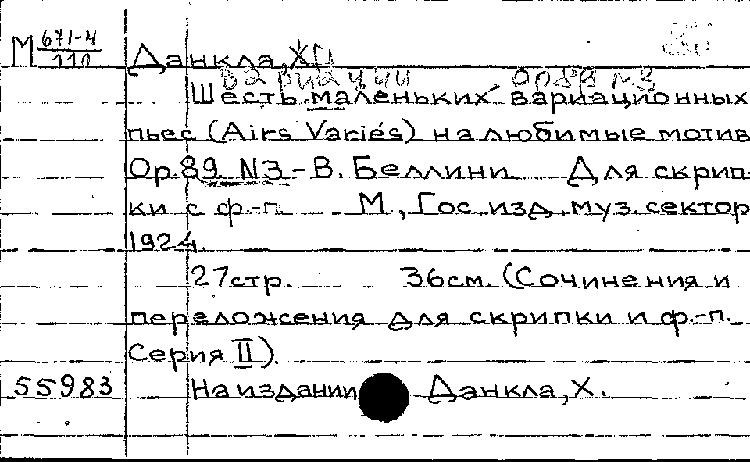 М 671-4/110 Данкла, Х
Вариации Ор 89 N3
Шесть маленьких вариационных
пьес (Airs Variés) на любимые мотив
Ор.89 N3 - В. Беллини Для скрип-
ки с ф.-п. М., Гос. изд. муз. сектор
1924.
27стр. 36см. (Сочинения и
переложения для скрипки и ф.-п.
Серия II).
55983 На издании Данкла, Х.